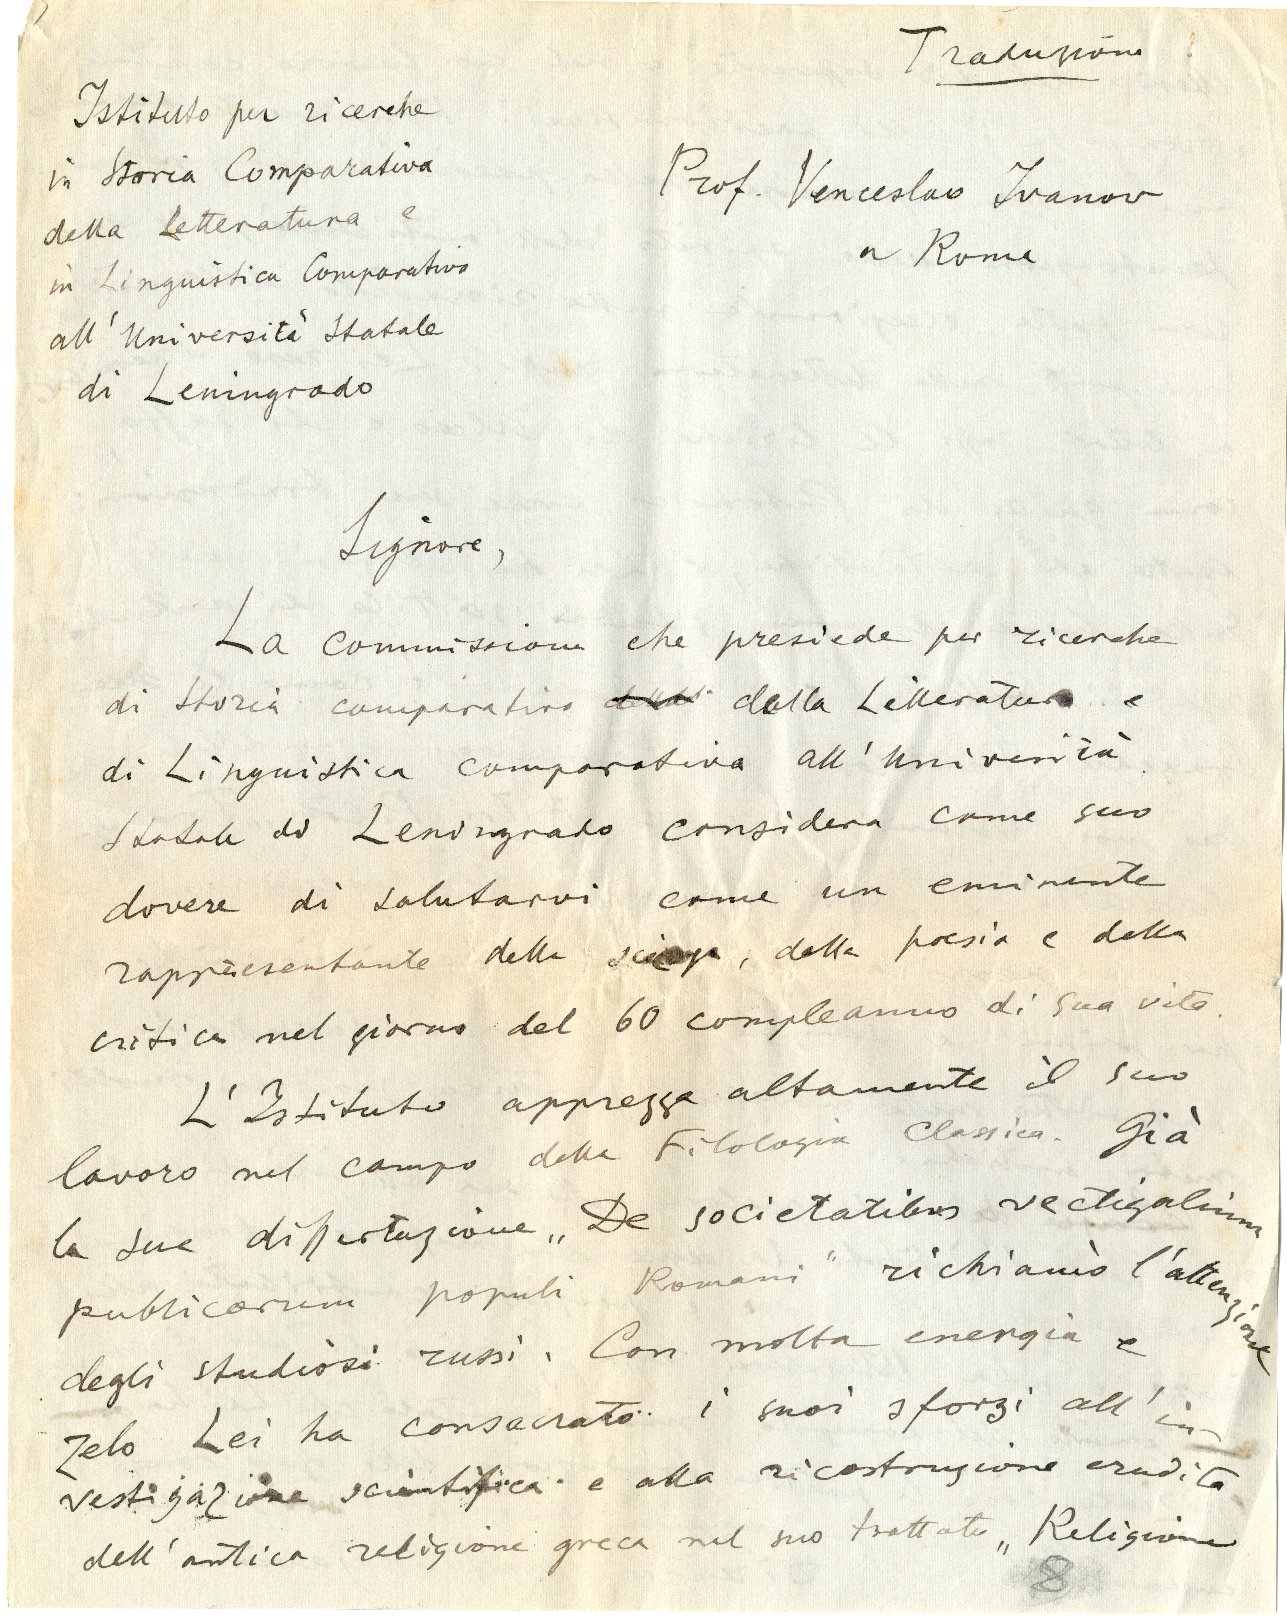 Traduzione
Istituto per ricerche
in Storia Comparativa
della Letteratura e
in Linguistica Comparativa
all'Università Statale
di Leningrado
Prof. Venceslao Ivanov
a Roma
Signore,
La commissione che presiede per ricerche
di Storia comparativa della Letteratura e
di Linguistica comparativa all'Università
Statale di Leningrado considera come suo
dovere di salutarvi come un eminente
rappresentante della scienza, della poesia e della
critica nel giorno del 60 compleanno di sua vita.
L'Istituto apprezza altamente il suo
lavoro nel campo della Filologia Classica. Già
la sua dissertazione „De societatibus vectigalium
publicorum populi Romani" richiamò l'attenzione
degli studiosi russi. Con molta energia e
zelo Lei ha consacrato i suoi sforzi all'in-
vestigazione scientifica e alla ricostruzione erudita
dell'antica religione greca nel suo trattato „Religione
8